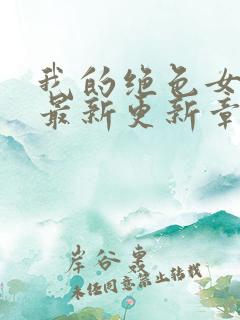 我的绝色女
最新更新章
岸谷東
未经同意禁止转载